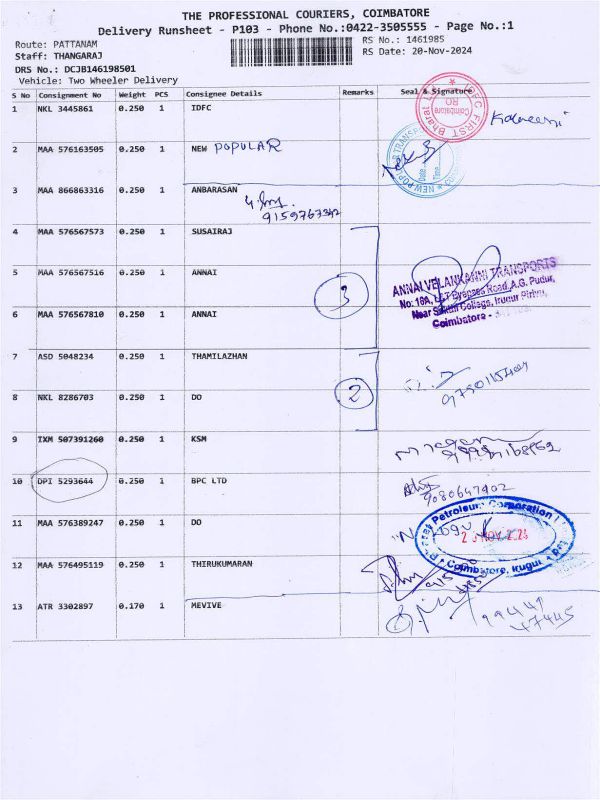 THE PROFESSIONAL COURIERS, COIMBATORE
Delivery Runsheet - P103 - Phone No.:0422-3505555 - Page No.:1
Route: PATTANAM
RS No.: 1461985
Staff: THANGARAJ
RS Date: 20-Nov-2024
DRS No.: DCJB146198501
Vehicle: Two Wheeler Delivery
S No Consignment No Weight PCS Consignee Details Remarks Seal & Signature
1 NKL 3445861 0.250 1 IDFC
IDFC FIRST Bharat
Coimbatore
RO
2 MAA 576163505 0.250 1 NEW POPULAR
NEW POPULAR TRANSPORT
Date
Time
3 MAA 866863316 0.250 1 ANBARASAN
9159767342
4 MAA 576567573 0.250 1 SUSAIRAJ
5 MAA 576567516 0.250 1 ANNAI
3
ANNAI VELANKANNI TRANSPORTS
No: 16A, L&T Byepass Road, A.G. Pudur,
Near College, Irugur Pirivu,
Coimbatore -
6 MAA 576567810 0.250 1 ANNAI
7 ASD 5048234 0.250 1 THAMILAZHAN
8 NKL 8286703 0.250 1 DO
2
9 IXM 507391260 0.250 1 KSM
10 DPI 5293644 0.250 1 BPC LTD
9080647402
11 MAA 576389247 0.250 1 DO
Bharat Petroleum Corporation
Coimbatore, Irugur
12 MAA 576495119 0.250 1 THIRUKUMARAN
13 ATR 3302897 0.170 1 MEVIVE
99441
47445